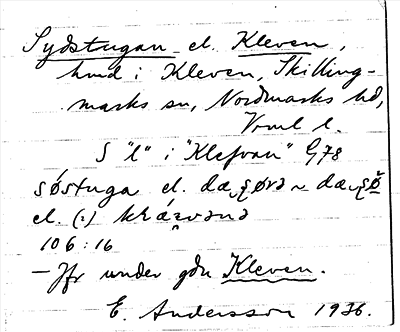 Sydstugan el. Kleven,
hmd i Kleven, Skilling-
marks sn, Nordmarks hd,
Vrml l.
S "l" i "Klefvan" G78
søstuga el.
el. (:)
106:16
— Jfr under gdn Kleven.
E. Andersson 1936.